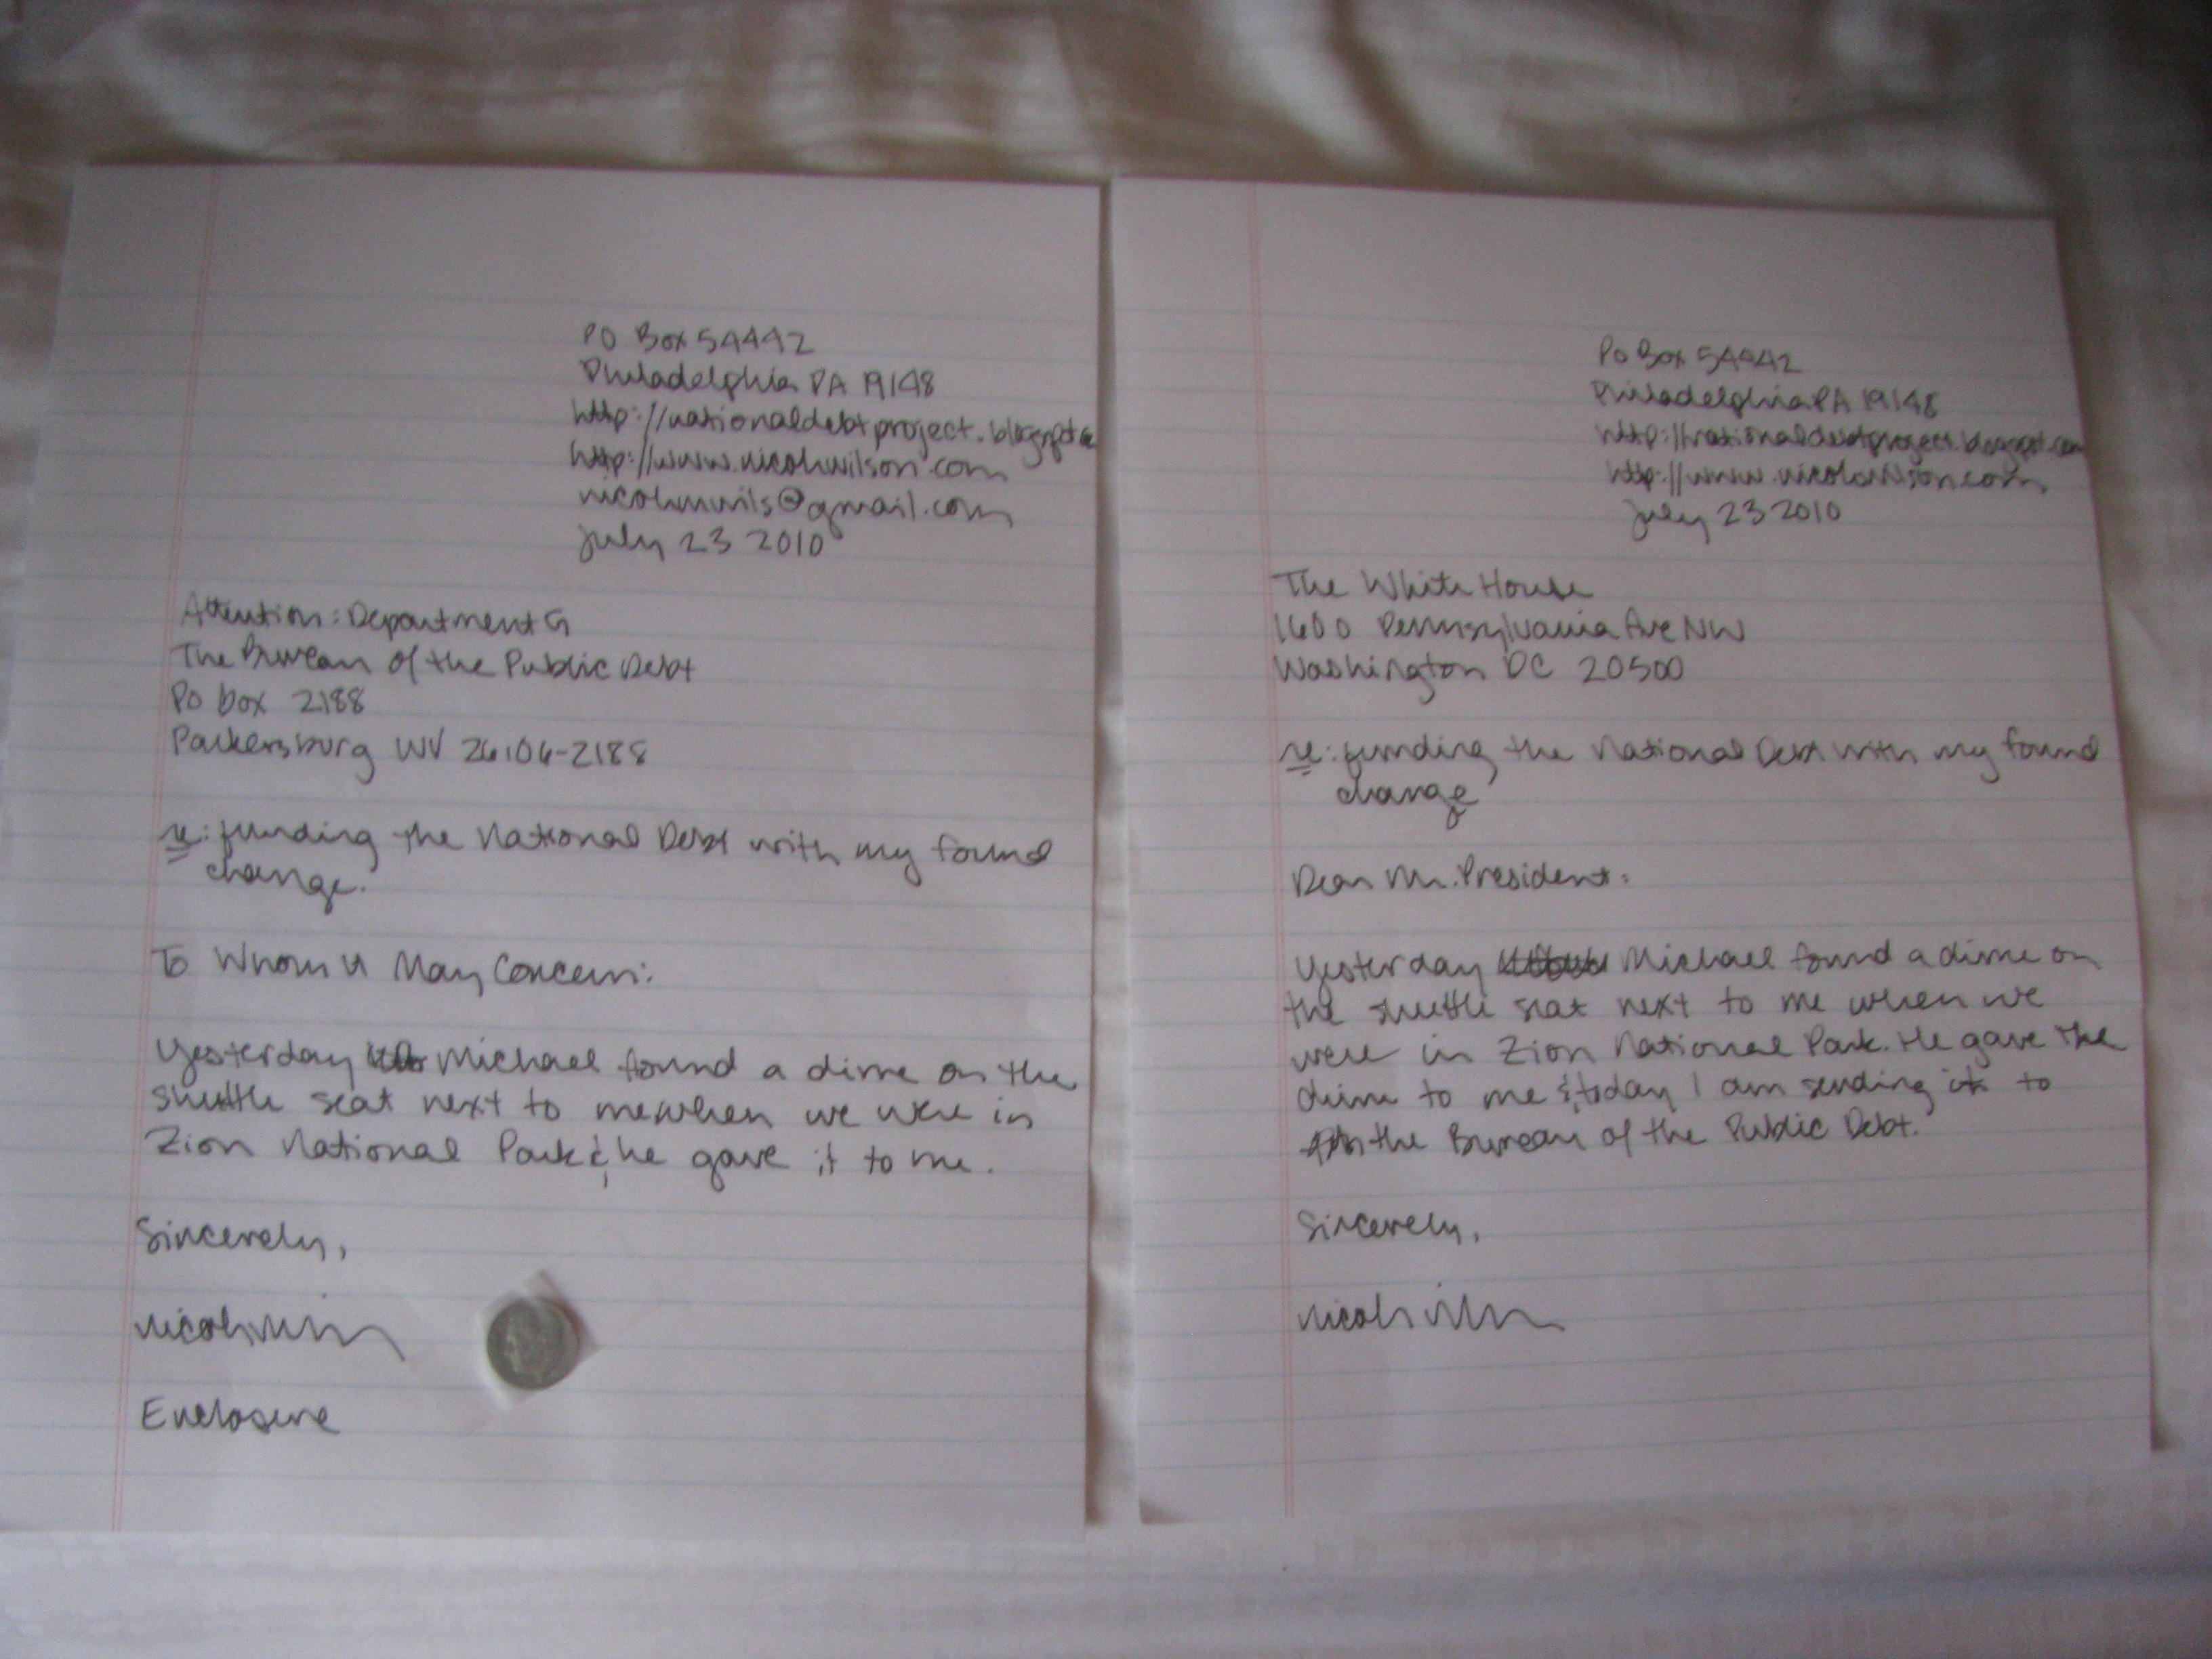 PO Box 54442
Philadelphia PA 19148
http://nationaldebtproject.blogspot.com
http://www.nicolewilson.com
july 23 2010
Attention: Department G
The Bureau of the Public Debt
PO box 2188
Parkersburg WV 26106-2188
re: funding the National Debt with my found
change.
To Whom It May Concern:
Yesterday Michael found a dime on the
shuttle seat next to me when we were in
Zion National Park & he gave it to me.
Sincerely,
Enclosure
Po Box 54442
Philadelphia PA 19148
http://nationaldebtproject.blogspot.com
http://www.nicolewilson.com
july 23 2010
The White House
1600 Pennsylvania Ave NW
Washington DC 20500
re: funding the National Debt with my found
change
Dear Mr. President:
Yesterday Michael found a dime on
the shuttle seat next to me when we
were in Zion National Park. He gave the
dime to me & today I am sending it to
the Bureau of the Public Debt.
Sincerely,